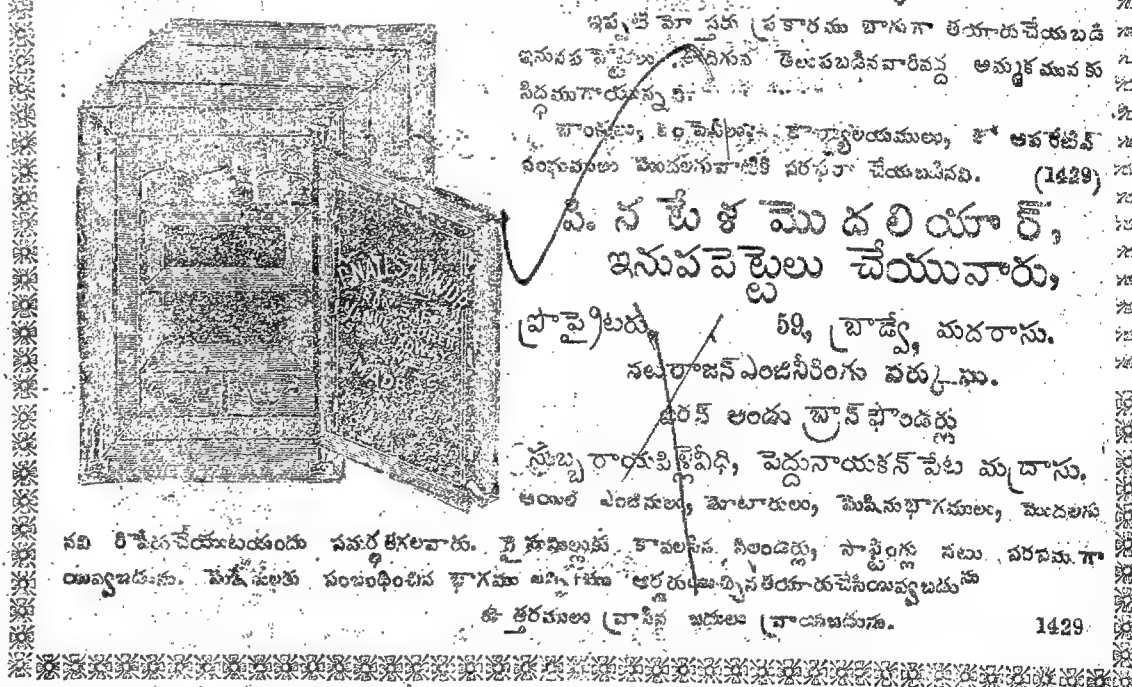 ఇప్పుటి మా స్తరు ప్రకారము బాగుగా తయారుచేయబడి
ఇనుపప పెట్టెలు దిగువ తెలుపబడినవారివద్ద అమ్మకమునకు
సిద్ధముగాయున్నవి.
బాంకులు, కంపెనీలు, కార్యాలయములు, కో ఆపరేటివ్
సంఘములు మొదలగువాటికి సరఫరా చేయబడినవి. (1429)
పి. న టే శ మొ ద లి యా ర్,
ఇనుపపెట్టెలు చేయునారు,
ప్రొప్రైటరు, 59, బ్రాడ్వే, మదరాసు.
నటరాజన్ ఎంజినీరింగు వర్కుషు.
ఐరన్ అండు బ్రాస్ ఫౌండర్లు
సుబ్బరాయపిళ్లెవీధి, పెద్దునాయకన్ పేట మద్రాసు.
ఆయిల్ ఎంజినులు, మోటారులు, మెషినుభాగములు, మొదలగు
నవి రిపేరుచేయుటయందు సమర్థతగలవారు. రైసుమిల్లుకు కావలసిన సిలండర్లు, సాఫ్టింగ్లు నటు సరసముగా
యివ్వబడును. మెషీనులకు సంబంధించిన భాగము ఆర్డరుయిచ్చిన తయారుచేసియివ్వబడును
ఉత్తరములు వ్రాసిన బదులు వ్రాయబడును. 1429